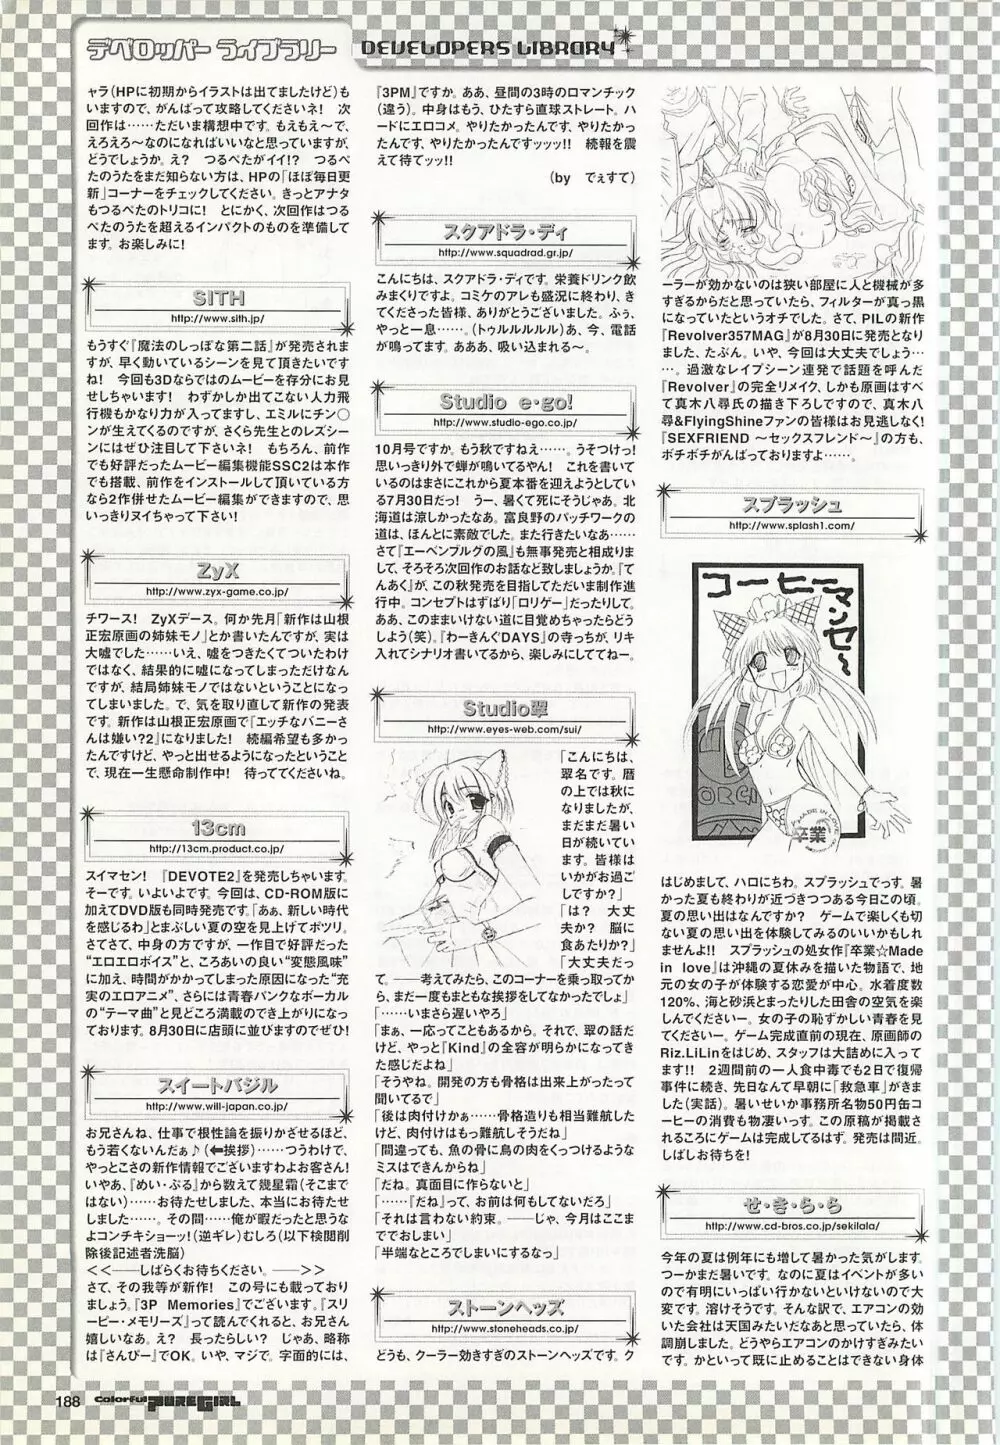 デベロッパー ライブラリー
DEVELOPERS LIBRARY
ャラ(HPに初期からイラストは出てましたけど)も
いますので、がんばって攻略してくださいネ! 次
回作は……ただいま構想中です。もえもえ〜で、
えろえろ〜なのになればいいなと思っていますが、
どうでしょうか。え? つるぺたがイイ!? つるぺ
たのうたをまだ知らない方は、HPの「ほぼ毎日更
新」コーナーをチェックしてください。きっとアナタ
もつるぺたのトリコに! とにかく、次回作はつる
ぺたのうたを超えるインパクトのものを準備して
ます。お楽しみに!
SITH
http://www.sith.jp/
もうすぐ『魔法のしっぽな第二話』が発売されま
すが、早く動いているシーンを見て頂きたいです
ね! 今回も3Dならではのムービーを存分にお見
せしちゃいます! わずかしか出てこない人力飛
行機もかなり力が入ってますし、エミルにチン○
ンが生えてくるのですが、さくら先生とのレズシー
ンにはぜひ注目して下さいネ! もちろん、前作
でも好評だったムービー編集機能SSC2は本作
でも搭載、前作をインストールして頂いている方
なら2作併せたムービー編集ができますので、思
いっきりヌイちゃって下さい!
ZyX
http://www.zyx-game.co.jp/
チワース! ZyXデース。何か先月「新作は山根
正宏原画の姉妹モノ」とか書いたんですが、実は
大嘘でした……いえ、嘘をつきたくてついたわけ
ではなく、結果的に嘘になってしまっただけなん
ですが、結局姉妹モノではないということになっ
てしまいました。で、気を取り直して新作の発表
です。新作は山根正宏原画で『エッチなバニーさ
んは嫌い?2』になりました! 続編希望も多かっ
たんですけど、やっと出せるようになったというこ
とで、現在一生懸命制作中! 待っててくださいね。
13cm
http://13cm.product.co.jp/
スイマセン! 『DEVOTE2』を発売しちゃいます。
そーです。いよいよです。今回は、CD-ROM版に
加えてDVD版も同時発売です。「あぁ、新しい時代
を感じるわ」とまぶしい夏の空を見上げてポツリ。
さてさて、中身の方ですが、一作目で好評だった
“エロエロボイス”と、ころあいの良い“変態風味”
に加え、時間がかかってしまった原因になった“充
実のエロアニメ”、さらには青春パンクなボーカル
の“テーマ曲”と見どころ満載のでき上がりになっ
ております。8月30日に店頭に並びますのでぜひ!
スイートバジル
http://www.will-japan.co.jp/
お兄さんね、仕事で根性論を振りかざせるほど、
もう若くないんだぁ♪(⬅挨拶)……つうわけで、
やっとこさの新作情報でございますわよお客さん!
いやあ、『めい・ぶる』から数えて幾星霜(そこまで
はない)……お待たせしました、本当にお待たせ
しました……。その間……俺が暇だったと思うな
よコンチキショーッ!(逆ギレ)むしろ(以下検閲削
除後記述者洗脳)
<<——しばらくお待ちください。——>>
さて、その我等が新作! この号にも載っており
ましょう。『3P Memories』でございます。『スリ
ーピー・メモリーズ』って読んでくれると、お兄さん
嬉しいなあ。え? 長ったらしい? じゃあ、略称
は『さんぴー』でOK。いや、マジで。字面的には、
『3PM』ですか。ああ、昼間の3時のロマンチック
(違う)。中身はもう、ひたすら直球ストレート。ハ
ードにエロコメ。やりたかったんです、やりたかっ
たんです、やりたかったんですッッッ!! 続報を震
えて待てッッ!!
(by でぇすて)
スクアドラ・ディ
http://www.squadrad.gr.jp/
こんにちは、スクアドラ・ディです。栄養ドリンク飲
みまくりですよ。コミケのアレも盛況に終わり、き
てくださった皆様、ありがとうございました。ふぅ、
やっと一息……。(トゥルルルルル)あ、今、電話
が鳴ってます。あああ、吸い込まれる〜。
Studio e・go!
http://www.studio-ego.co.jp/
10月号ですか。もう秋ですねえ……うそつけっ!
思いっきり外で蝉が鳴いてるやん! これを書いて
いるのはまさにこれから夏本番を迎えようとしている
7月30日だっ! うー、暑くて死にそうじゃあ。北
海道は涼しかったなあ。富良野のパッチワークの
道は、ほんとに素敵でした。また行きたいなあ……
さて『エーベンブルグの風』も無事発売と相成りま
して、そろそろ次回作のお話など致しましょうか。『て
んあく』が、この秋発売を目指してただいま制作進
行中。コンセプトはずばり「ロリゲー」だったりして。
ああ、このままいけない道に目覚めちゃったらどう
しよう(笑)。『わーきんぐDAYS』の寺っちが、リキ
入れてシナリオ書いてるから、楽しみにしててねー。
Studio翠
http://www.eyes-web.com/sui/
「こんにちは、
翠名です。暦
の上では秋に
なりましたが、
まだまだ暑い
日が続いてい
ます。皆様は
いかがお過ご
しですか?」
「は? 大丈
夫か? 脳に
食あたりか?」
「大丈夫だっ
て。——考えてみたら、このコーナーを乗っ取ってか
ら、まだ一度もまともな挨拶をしてなかったでしょ」
「……いまさら遅いやろ」
「まぁ、一応ってこともあるから。それで、翠の話だ
けど、やっと『Kind』の全容が明らかになってき
た感じだよね」
「そうやね。開発の方も骨格は出来上がったって
聞いてるで」
「後は肉付けかぁ……骨格造りも相当難航したけ
ど、肉付けはもっ難航しそうだね」
「間違っても、魚の骨に鳥の肉をくっつけるような
ミスはできんからね」
「だね。真面目に作らないと」
「……『だね』って、お前は何もしてないだろ」
「それは言わない約束。——じゃ、今月はここま
ででおしまい」
「半端なところでしまいにするなっ」
ストーンヘッズ
http://www.stoneheads.co.jp/
どうも、クーラー効きすぎのストーンヘッズです。ク
ーラーが効かないのは狭い部屋に人と機械が多
すぎるからだと思っていたら、フィルターが真っ黒
になっていたというオチでした。さて、PILの新作
『Revolver357MAG』が8月30日に発売となり
ました、たぶん。いや、今回は大丈夫でしょう…
…。過激なレイプシーン連発で話題を呼んだ
『Revolver』の完全リメイク、しかも原画はすべ
て真木八尋氏の描き下ろしですので、真木八
尋&FlyingShineファンの皆様はお見逃しなく!
『SEXFRIEND 〜セックスフレンド〜』の方も、
ボチボチがんばっておりますよ……。
スプラッシュ
http://www.splash1.com/
コーヒーマンセ〜
ORGI
MADE IN LOVE
卒業
はじめまして、ハロにちわ。スプラッシュでっす。暑
かった夏も終わりが近づきつつある今日この頃。
夏の思い出はなんですか? ゲームで楽しくも切
ない夏の思い出を体験してみるのいいかもしれ
ませんよ!! スプラッシュの処女作『卒業☆Made
in love』は沖縄の夏休みを描いた物語で、地
元の女の子が体験する恋愛が中心。水着度数
120%、海と砂浜とまったりした田舎の空気を楽
しんでくださいー。女の子の恥ずかしい青春を見
てくださいー。ゲーム完成直前の現在、原画師の
Riz.LiLinをはじめ、スタッフは大詰めに入って
ます!! 2週間前の一人食中毒でも2日で復帰
事件に続き、先日なんて早朝に「救急車」がきま
した(実話)。暑いせいか事務所名物50円缶コ
ーヒーの消費も物凄いっす。この原稿が掲載さ
れるころにゲームは完成してるはず。発売は間近。
しばしお待ちを!
せ・き・ら・ら
http://www.cd-bros.co.jp/sekilala/
今年の夏は例年にも増して暑かった気がします。
つーかまだ暑いです。なのに夏はイベントが多い
ので有明にいっぱい行かないといけないので大
変です。溶けそうです。そんな訳で、エアコンの効
いた会社は天国みたいだなあと思っていたら、体
調崩しました。どうやらエアコンのかけすぎみたい
です。かといって既に止めることはできない身体
188
Colorful PUREGIRL